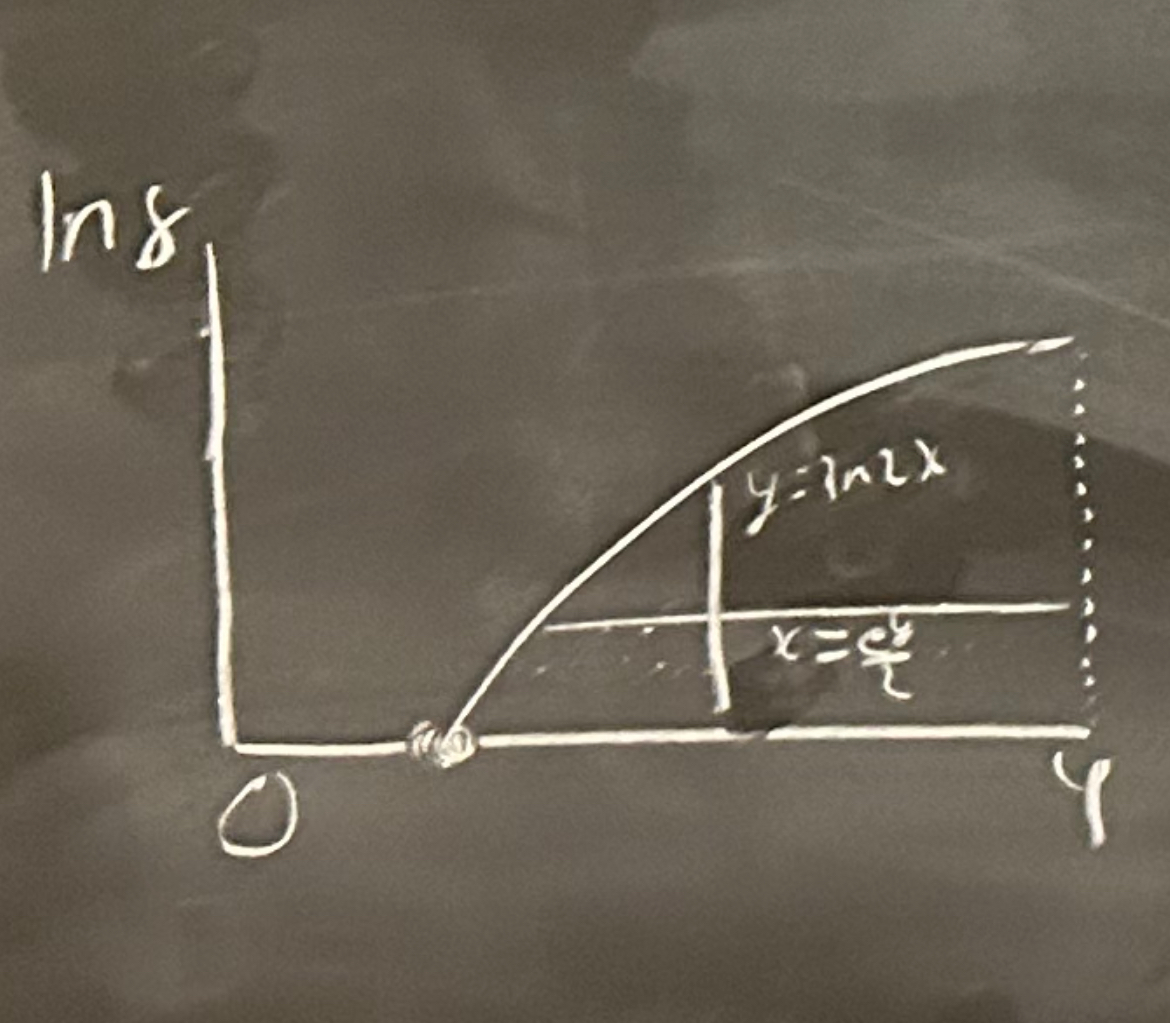 ln 8
y = ln 2x
x = e^y/2
0
4